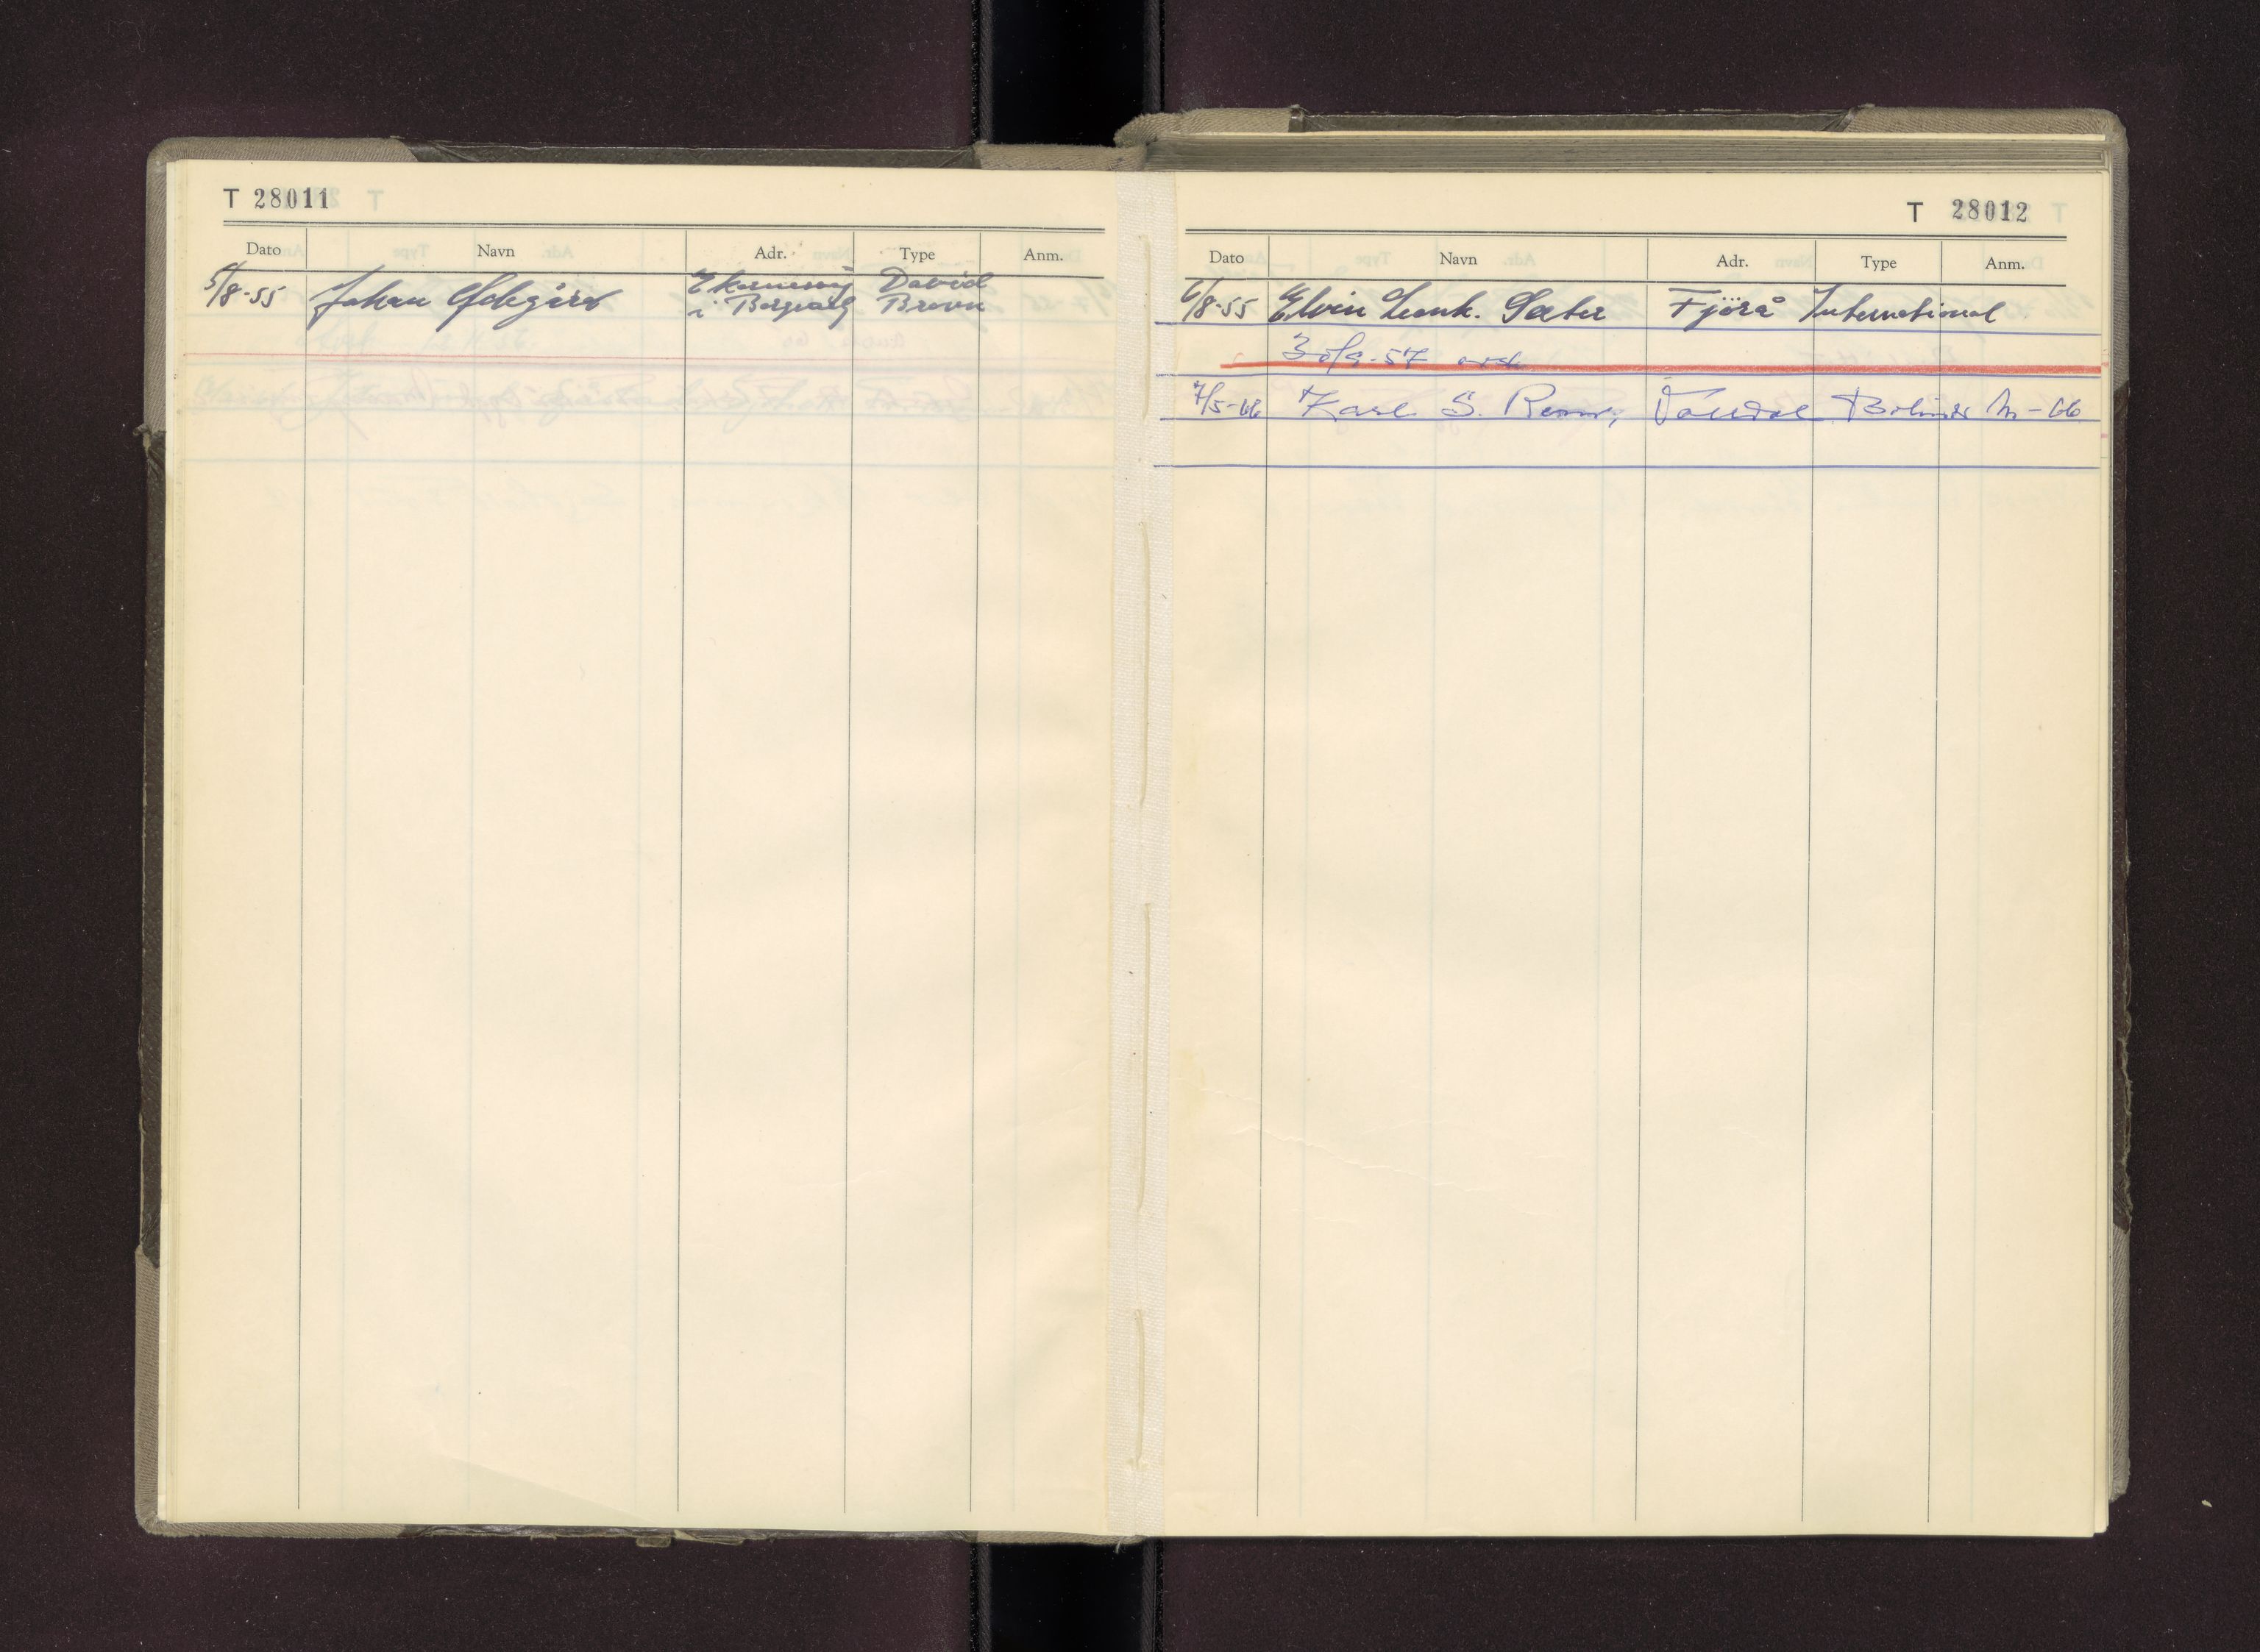 T 28011
Dato Navn Adr. Type Anm.
5/8-55 Johan Ødegård Ekornesvåg David
i Borgund Brown
T 28012
Dato Navn Adr. Type Anm.
6/8-55 Elvin Leonh. Sæter Fjörå International
30/9-57
7/5-66 Karl S. Valldal Bolinder M-66